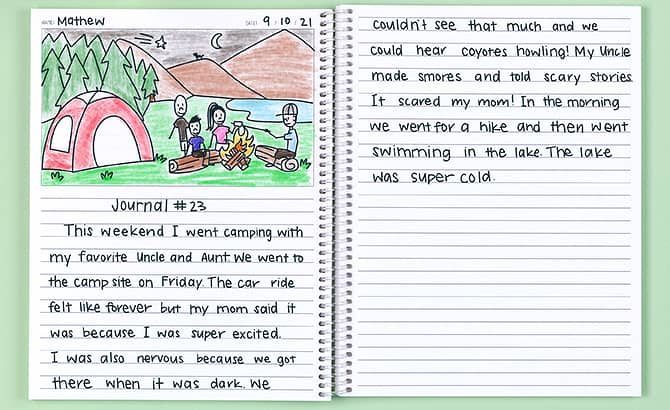 NAME: Mathew
DATE: 9/10/21
Journal #23
This weekend I went camping with
my favorite Uncle and Aunt. We went to
the camp site on Friday. The car ride
felt like forever but my mom said it
was because I was super excited.
I was also nervous because we got
there when it was dark. We
couldn't see that much and we
could hear coyotes howling! My Uncle
made smores and told scary stories.
It scared my mom! In the morning
we went for a hike and then went
swimming in the lake. The lake
was super cold.